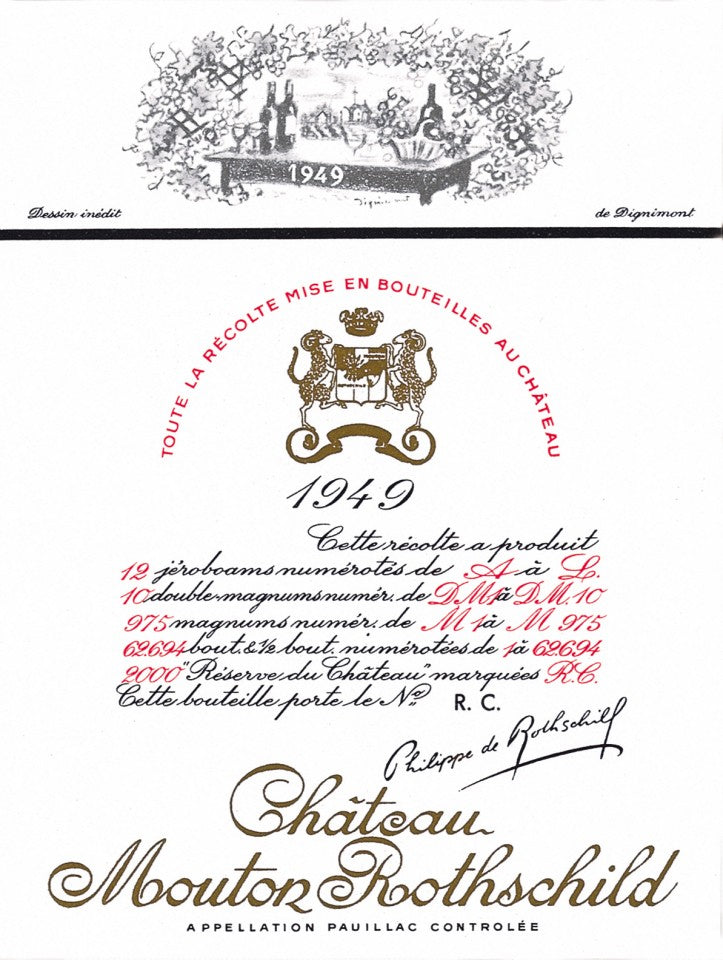 1949
Dignimont
Dessin inédit
de Dignimont
TOUTE LA RÉCOLTE MISE EN BOUTEILLES AU CHÂTEAU
1949
Cette récolte a produit
12 jéroboams numérotés de A à L.
10 double-magnums numér. de DM 1 à DM. 10
975 magnums numér. de M 1 à M 975
62.694 bout. & ½ bout. numérotées de 1 à 62.694
2000 "Réserve du Château" marquées R.C.
Cette bouteille porte le No R. C.
Philippe de Rothschild
Château
Mouton Rothschild
APPELLATION PAUILLAC CONTROLÉE